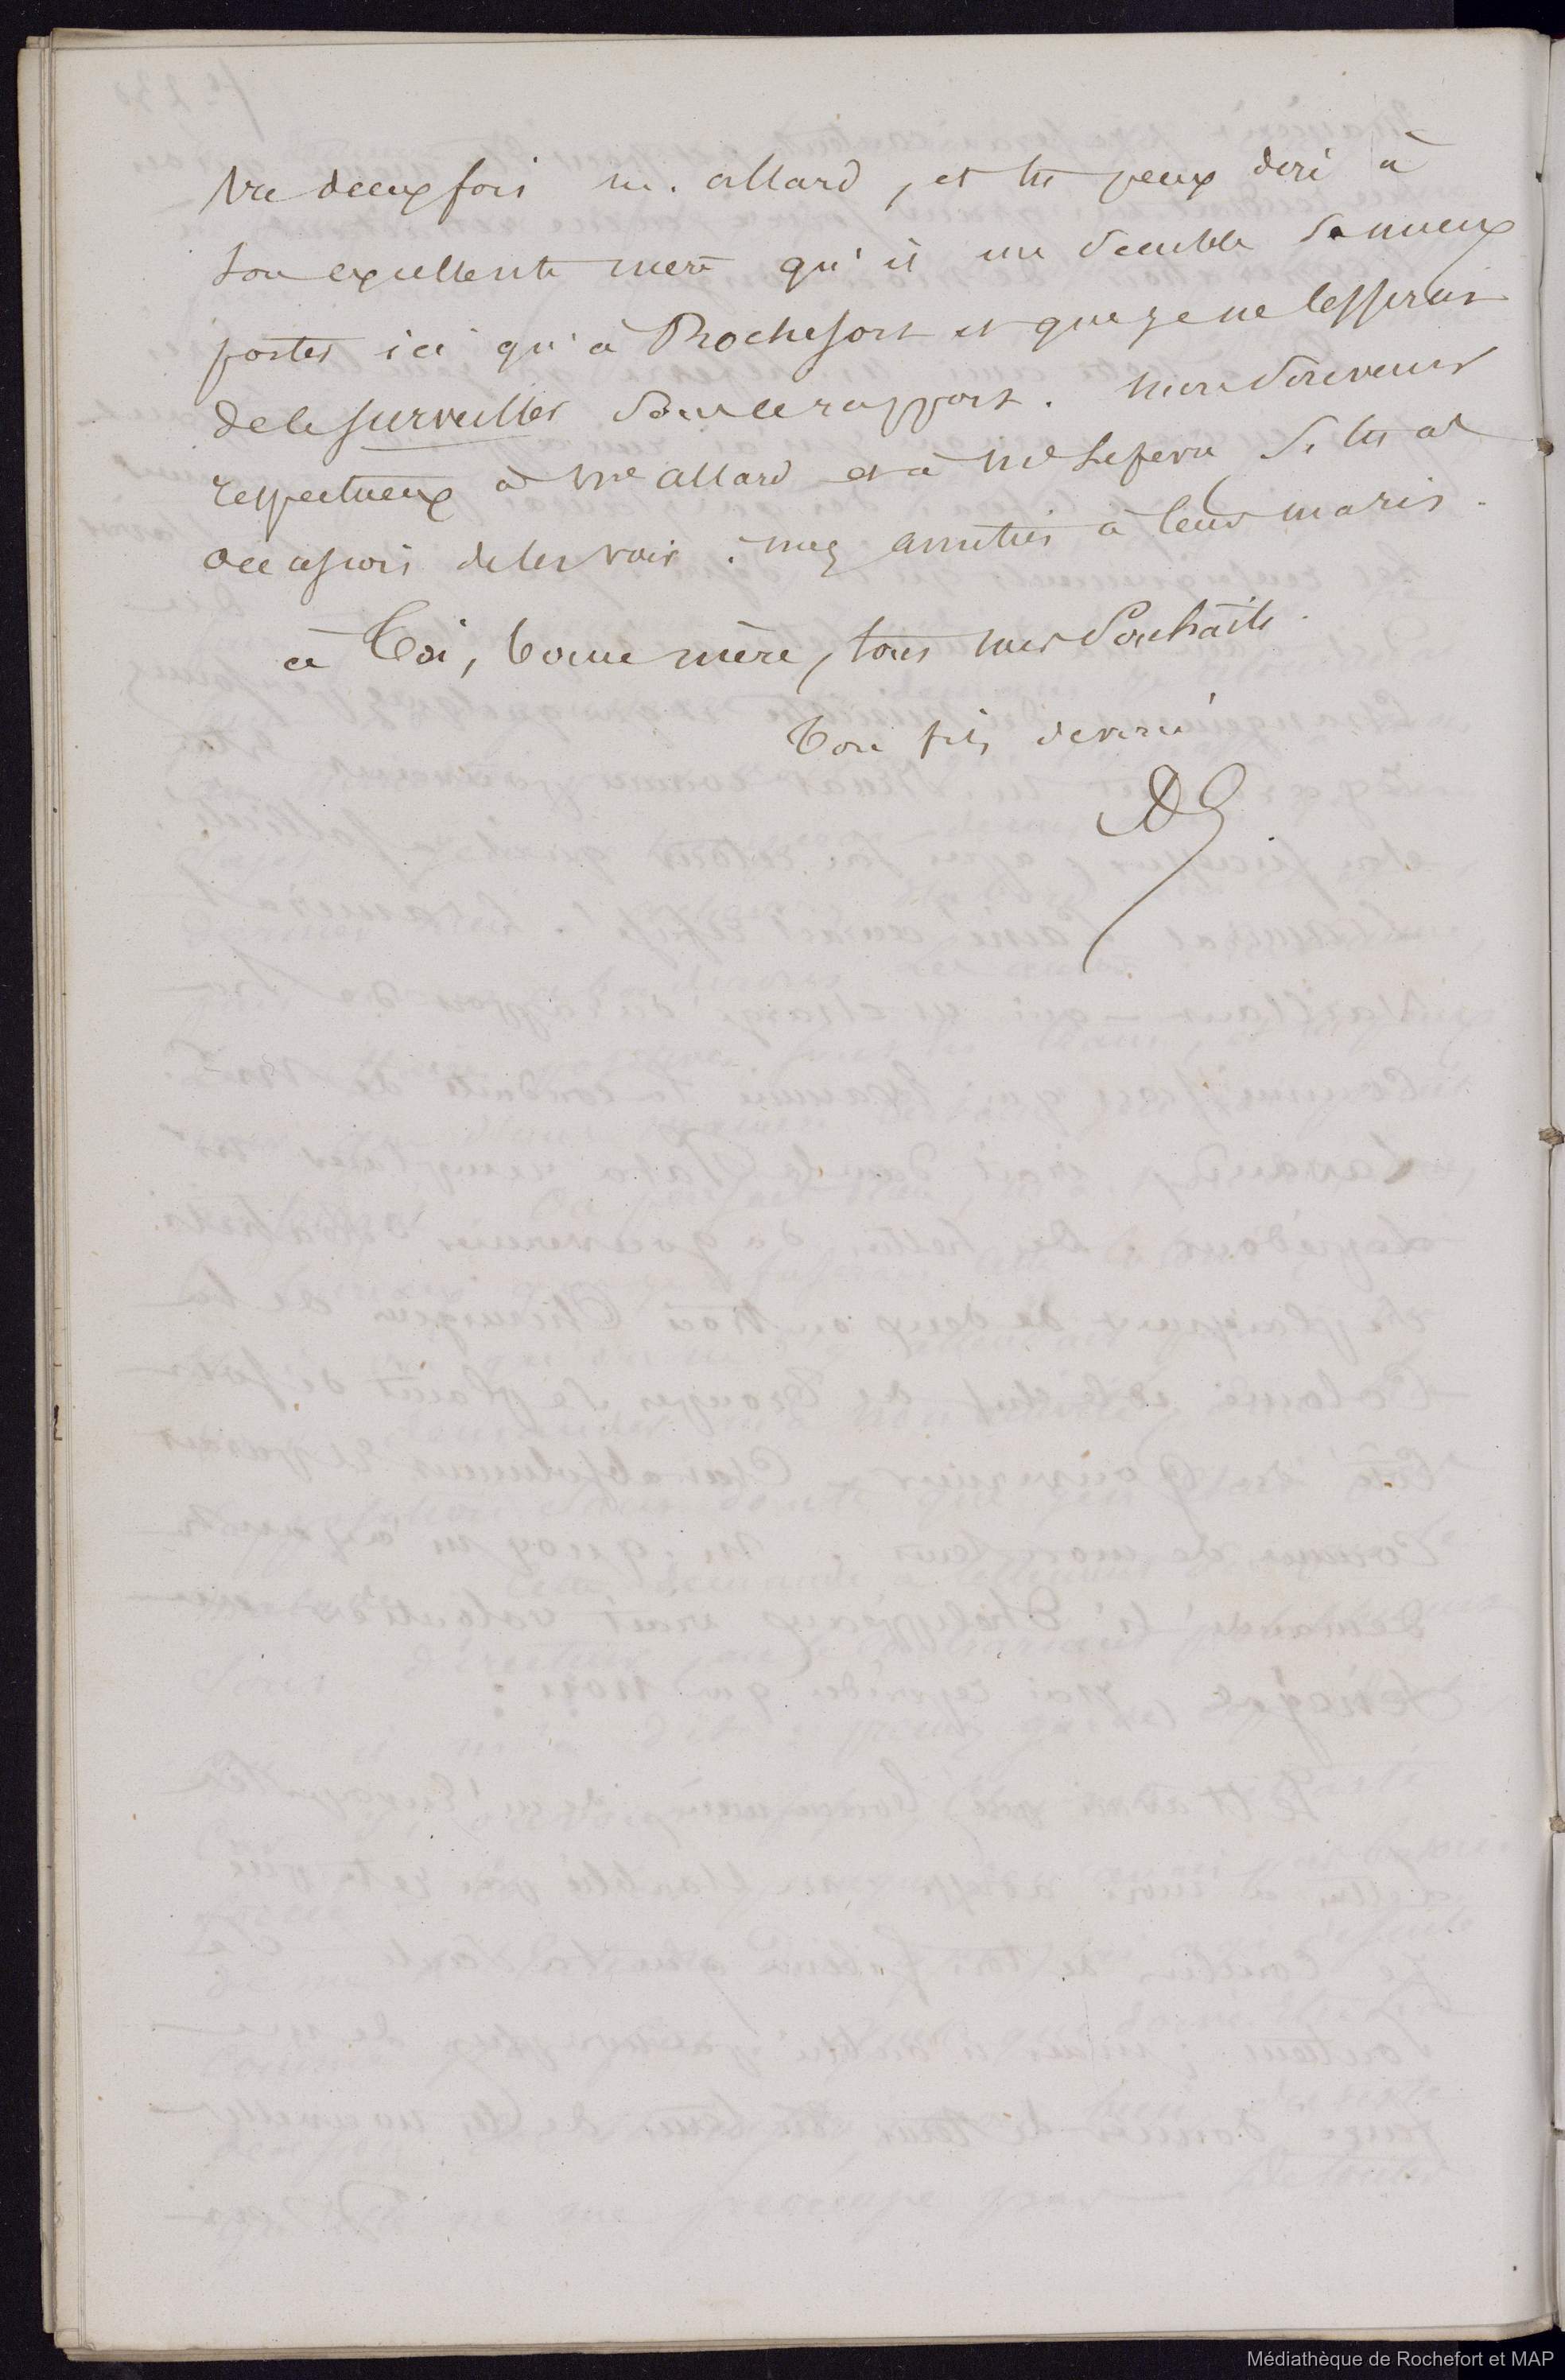 tré deux fois M. Allard, et tu peux dire à
son excellente mère qu'il me semble se mieux
porter ici qu'à Rochefort et que je ne cesserai
de le surveiller sous ce rapport. Mon souvenir
respectueux à Mme Allard et à Me Lefevre si tu as
occasion de les voir : mes amitiés à leurs maris.
à Toi, bonne mère, tous mes souhaits.
Ton fils dévoué
Médiathèque de Rochefort et MAP